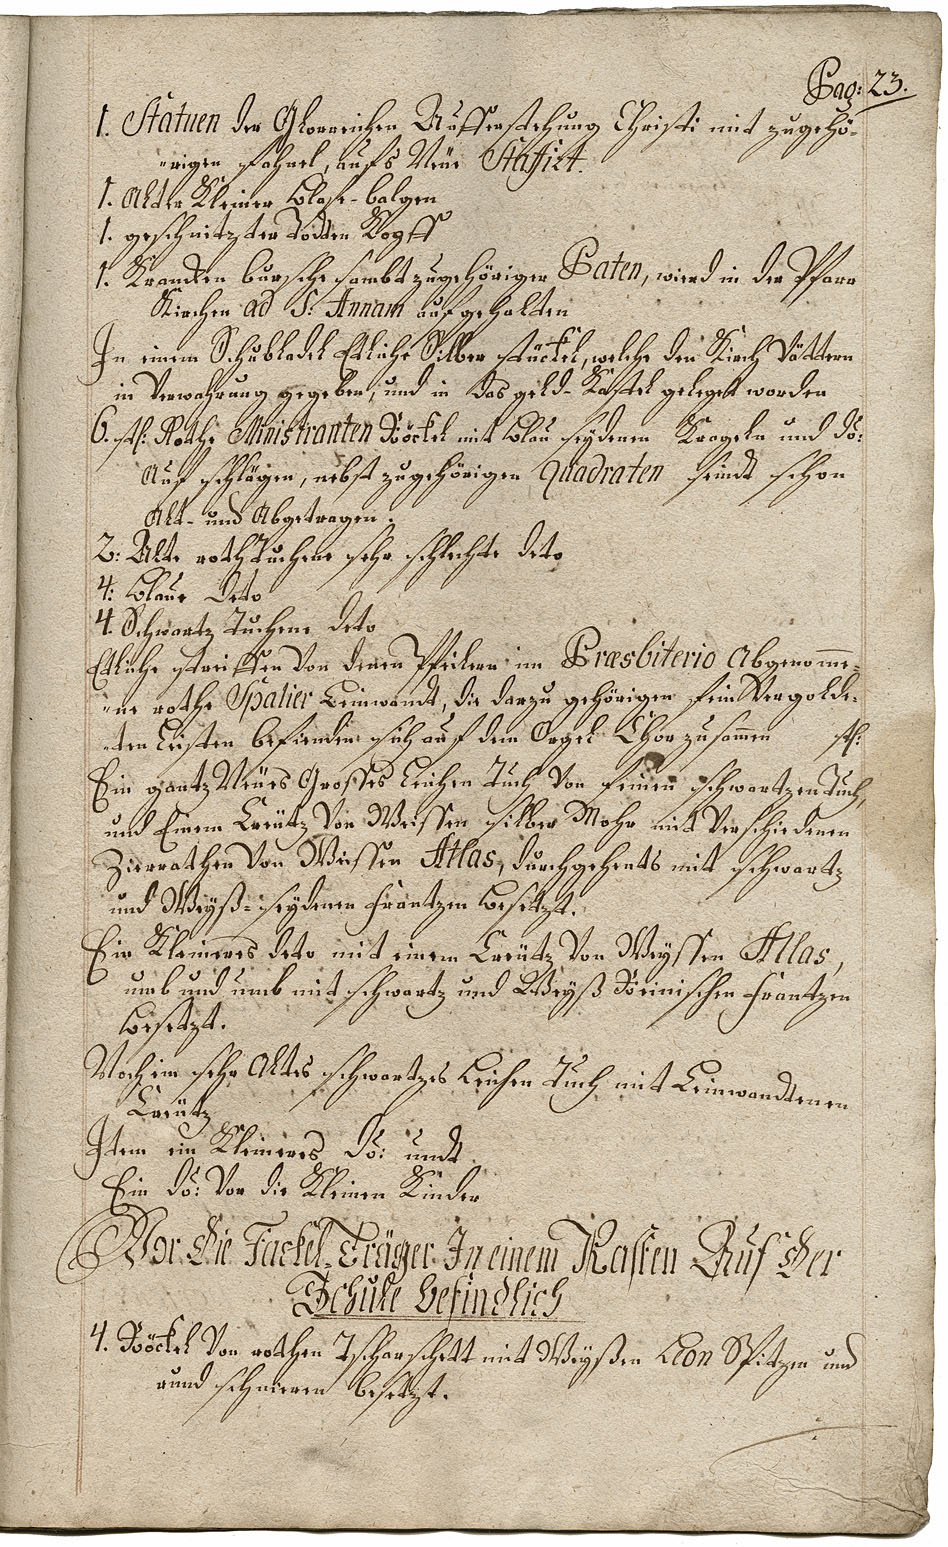 Pag: 23.
1. Statuen der Glorreichen Aufferstehung Christi mit zugehö-
rigen fahnel, aufs Neüe Staffirt.
1. Alter Kleiner Blaß-balgen
1. geschnitzter Todten Kopff
1. Krancken bursche sambt zugehöriger Paten, wierd in der Pfarr
Kirchen ad S: Annam aufgehalten
In einem Schubladel Etliche Silber stückel, welche den Kirch Vättern
in Verwahrung gegeben, und in das geld-Kastel geleget worden
6. st: Rothe Ministranten Röckel mit blau seydenen Krageln und do:
Auf schlägen, nebst zugehörigen Quadraten seindt schon
Alt- und Abgetragen.
2: Alte roth Tuchene sehr schlechte deto
4: blaue deto
4. Schwartz Tuchene deto
Etliche streiffen von denen Pfeilern im Præsbiterio Abgenomme-
ne rothe Spalier Leinwandt, die darzu gehörigen fein Vergolde-
ten Leisten befinden sich auf dem Orgel Chor zusammen st:
Ein gantz Neües Grosses Leichen Tuch von feinen schwartzen Tuch,
und Einem Creütz von Weissen silber Mohr mit Verschiedenen
Zierrathen von Weissen Atlas, durchgehents mit schwartz
und Weyß-seydenen frantzen besetzt.
Ein Kleineres deto mit einem Creütz von Weyssen Atlas,
umb und umb mit schwartz und Weyß frantzen
besetzt.
Noch ein sehr Altes schwartzes Leichen Tuch mit Leinwandtenen
Creütz
Item ein Kleineres do: undt
Ein do: Vor die Kleinen Kinder
Vor die Fackel-Träger In einem Kasten Auf der
Schule befindlich
4. Röckel von rothen mit Weyßen Leon Spitzen und
rund besetzt.